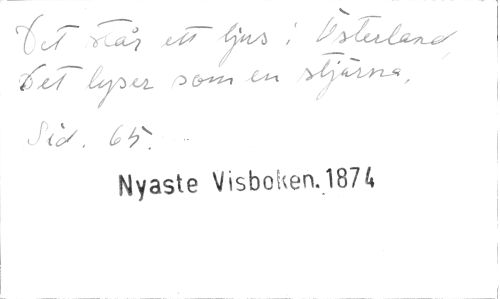 Det står ett ljus i Österland,
Det lyser som en stjärna.
Sid. 65.
Nyaste Visboken. 1874